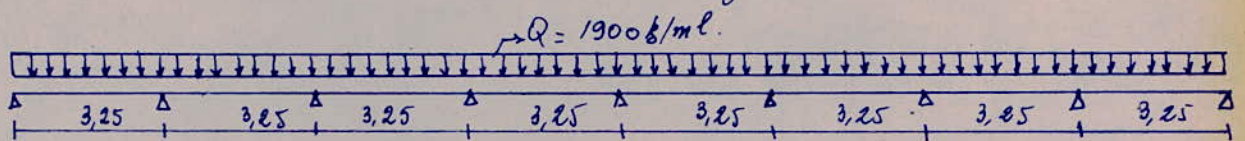 Q = 1900 k/ml.
3,25 3,25 3,25 3,25 3,25 3,25 3,25 3,25